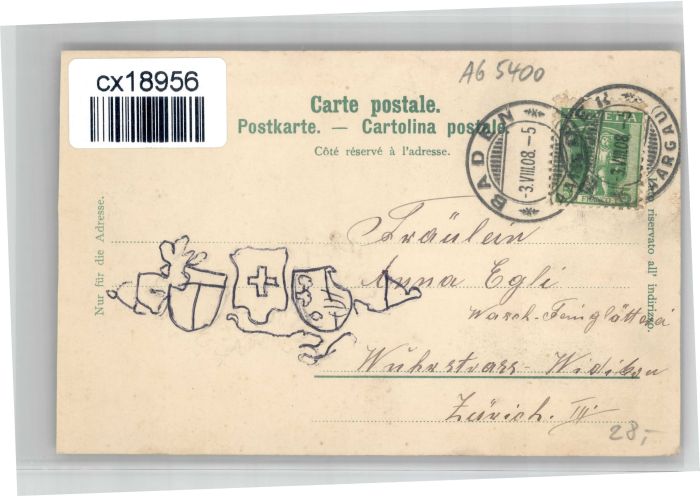 cx18956
AG 5400
Carte postale.
Postkarte. — Cartolina postale.
Côté réservé à l'adresse.
BADEN
-3.VIII.08.-5
-3.VIII.08.-
(AARGAU)
Nur für die Adresse.
riservato all' indirizzo.
Fräulein
Anna Egli
Wasch-Feinglätterei
Wuhrstrass-Widikon
Zürich. III.
28,-